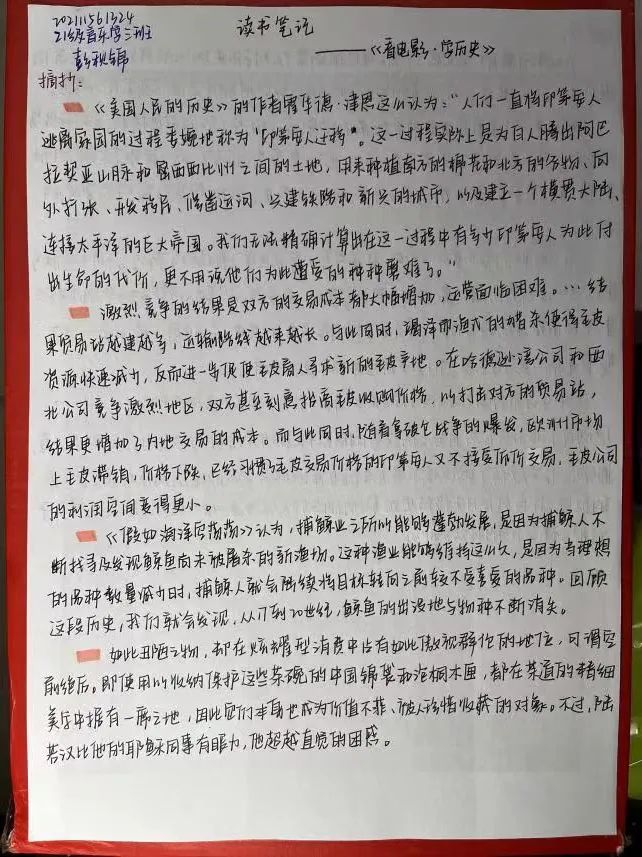 202111561324
21级音乐学三班
彭秋锦
读书笔记
——《看电影·学历史》
摘抄:
《美国人民的历史》的作者霍华德·津恩这么认为:“人们一直将印第安人
逃离家园的过程委婉地称为“印第安人迁移”。这一过程实际上是为白人腾出阿巴
拉契亚山脉和密西西比州之间的土地,用来种植南方的棉花和北方的谷物、向
外扩张、开发移民、修凿运河、兴建铁路和新兴的城市,以及建立一个横贯大陆、
连接太平洋的巨大帝国。我们无法精确计算出在这一过程中有多少印第安人为此付
出生命的代价,更不用说他们为此遭受的种种磨难了。”
激烈竞争的结果是双方的交易成本都大幅增加,运营面临困难。…结
果贸易站越建越多,运输路线越来越长。与此同时,竭泽而渔式的猎杀使得毛皮
资源快速减少,反而进一步促使毛皮商人寻求新的毛皮产地。在哈德逊湾公司和西
北公司竞争激烈地区,双方甚至刻意抬高毛皮收购价格,以打击对方的贸易站,
结果更增加了内地交易的成本。而与此同时,随着拿破仑战争的爆发,欧洲市场
上毛皮滞销,价格下跌,已经习惯了毛皮交易价格的印第安人又不接受低价交易,毛皮公司
的利润空间变得更小。
《假如海洋空荡荡》认为,捕鲸业之所以能够蓬勃发展,是因为捕鲸人不
断找寻及发现鲸鱼尚未被屠杀的新渔场。这种渔业能够维持这么久,是因为当理想
的品种数量减少时,捕鲸人就会陆续将目标转向之前较不受喜爱的品种。回顾
这段历史,我们就会发现,从17到20世纪,鲸鱼的出没地与物种不断消失。
如此丑陋之物,却在炫耀型消费中占有如此傲视群伦的地位,可谓空
前绝后。即使用以收纳保护这些茶碗的中国锦袋和泡桐木匣,都在茶道的精细
美学中据有一席之地,因此它们本身也成为价值不菲、被人珍惜收藏的对象。不过,陆
若汉比他的耶稣同事有眼力,他超越直觉的困惑。